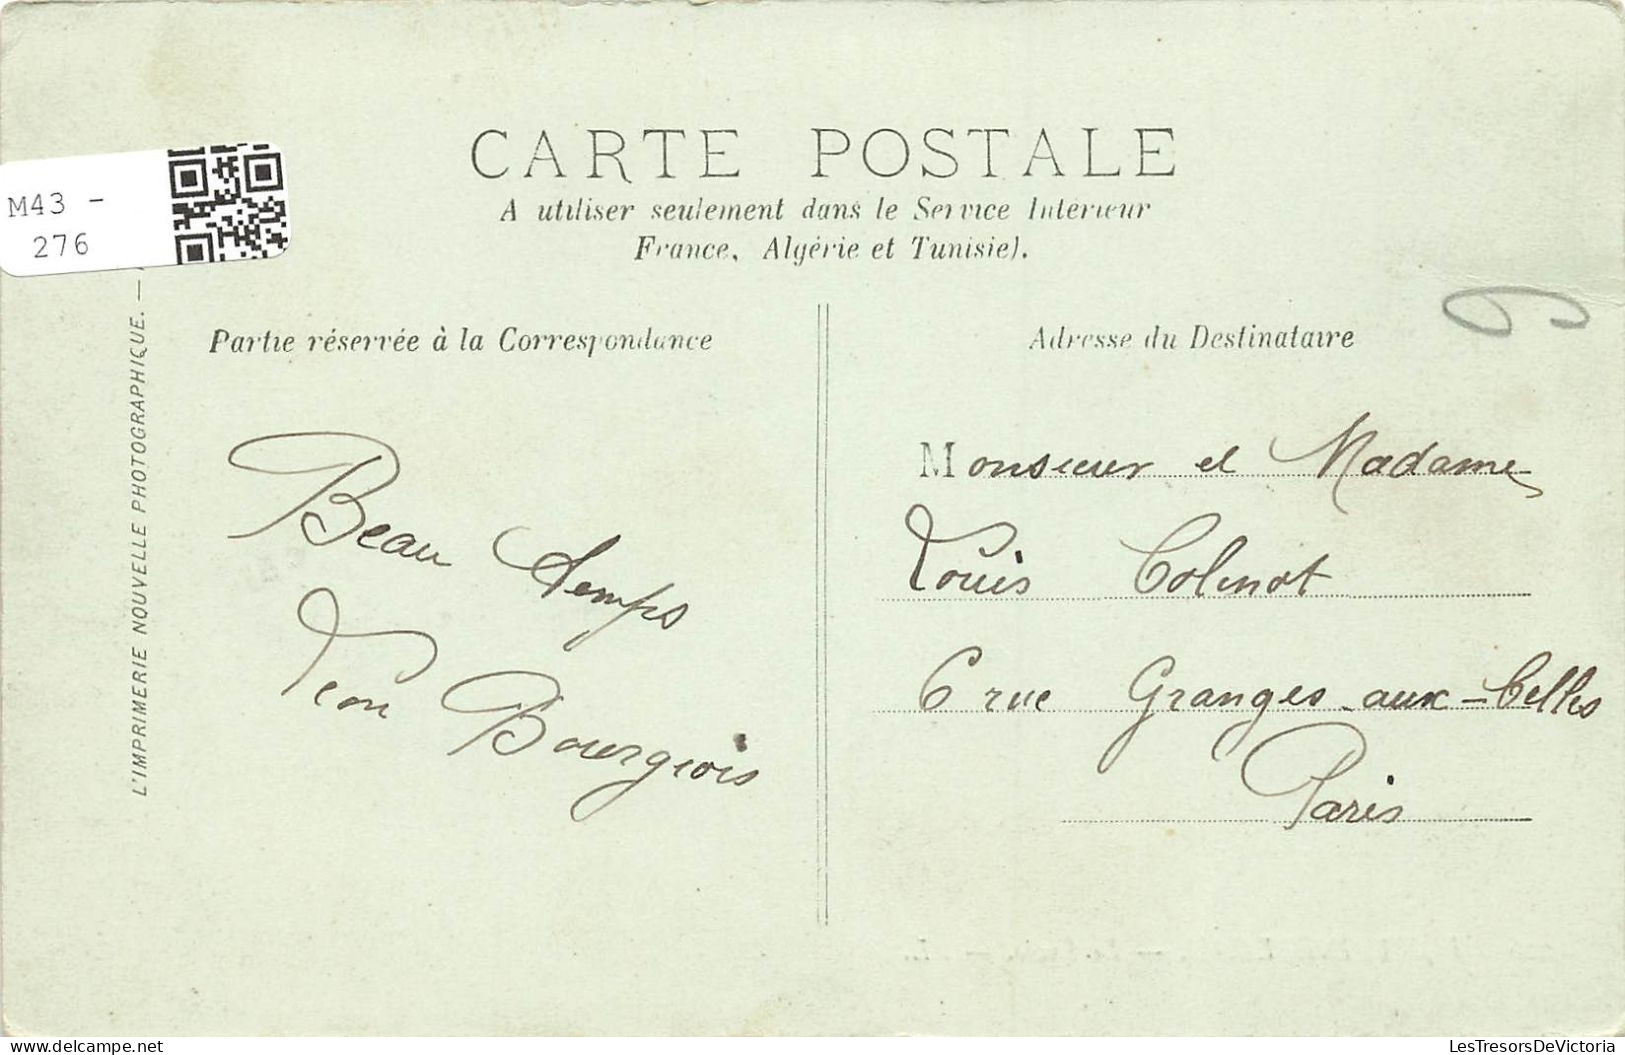 CARTE POSTALE
A utiliser seulement dans le Service Intérieur
France, Algérie et Tunisie).
M43 -
276
L'IMPRIMERIE NOUVELLE PHOTOGRAPHIQUE. —
Partie réservée à la Correspondance
Beau temps
Léon Bourgeois
Adresse du Destinataire
Monsieur et Madame
Louis Colinot
6 rue Granges-aux-Belles
Paris
LesTresorsDeVictoria
delcampe.net